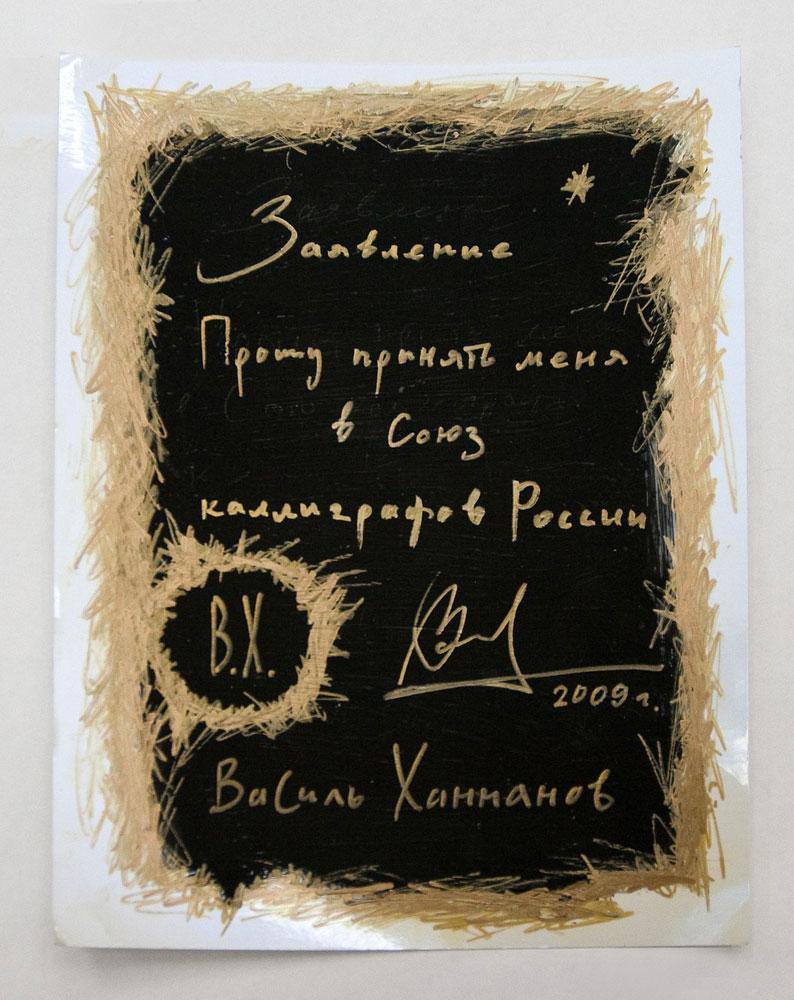 Заявление
Прошу принять меня
в Союз
каллиграфов России
В.Х.
2009 г.
Василь Ханнанов